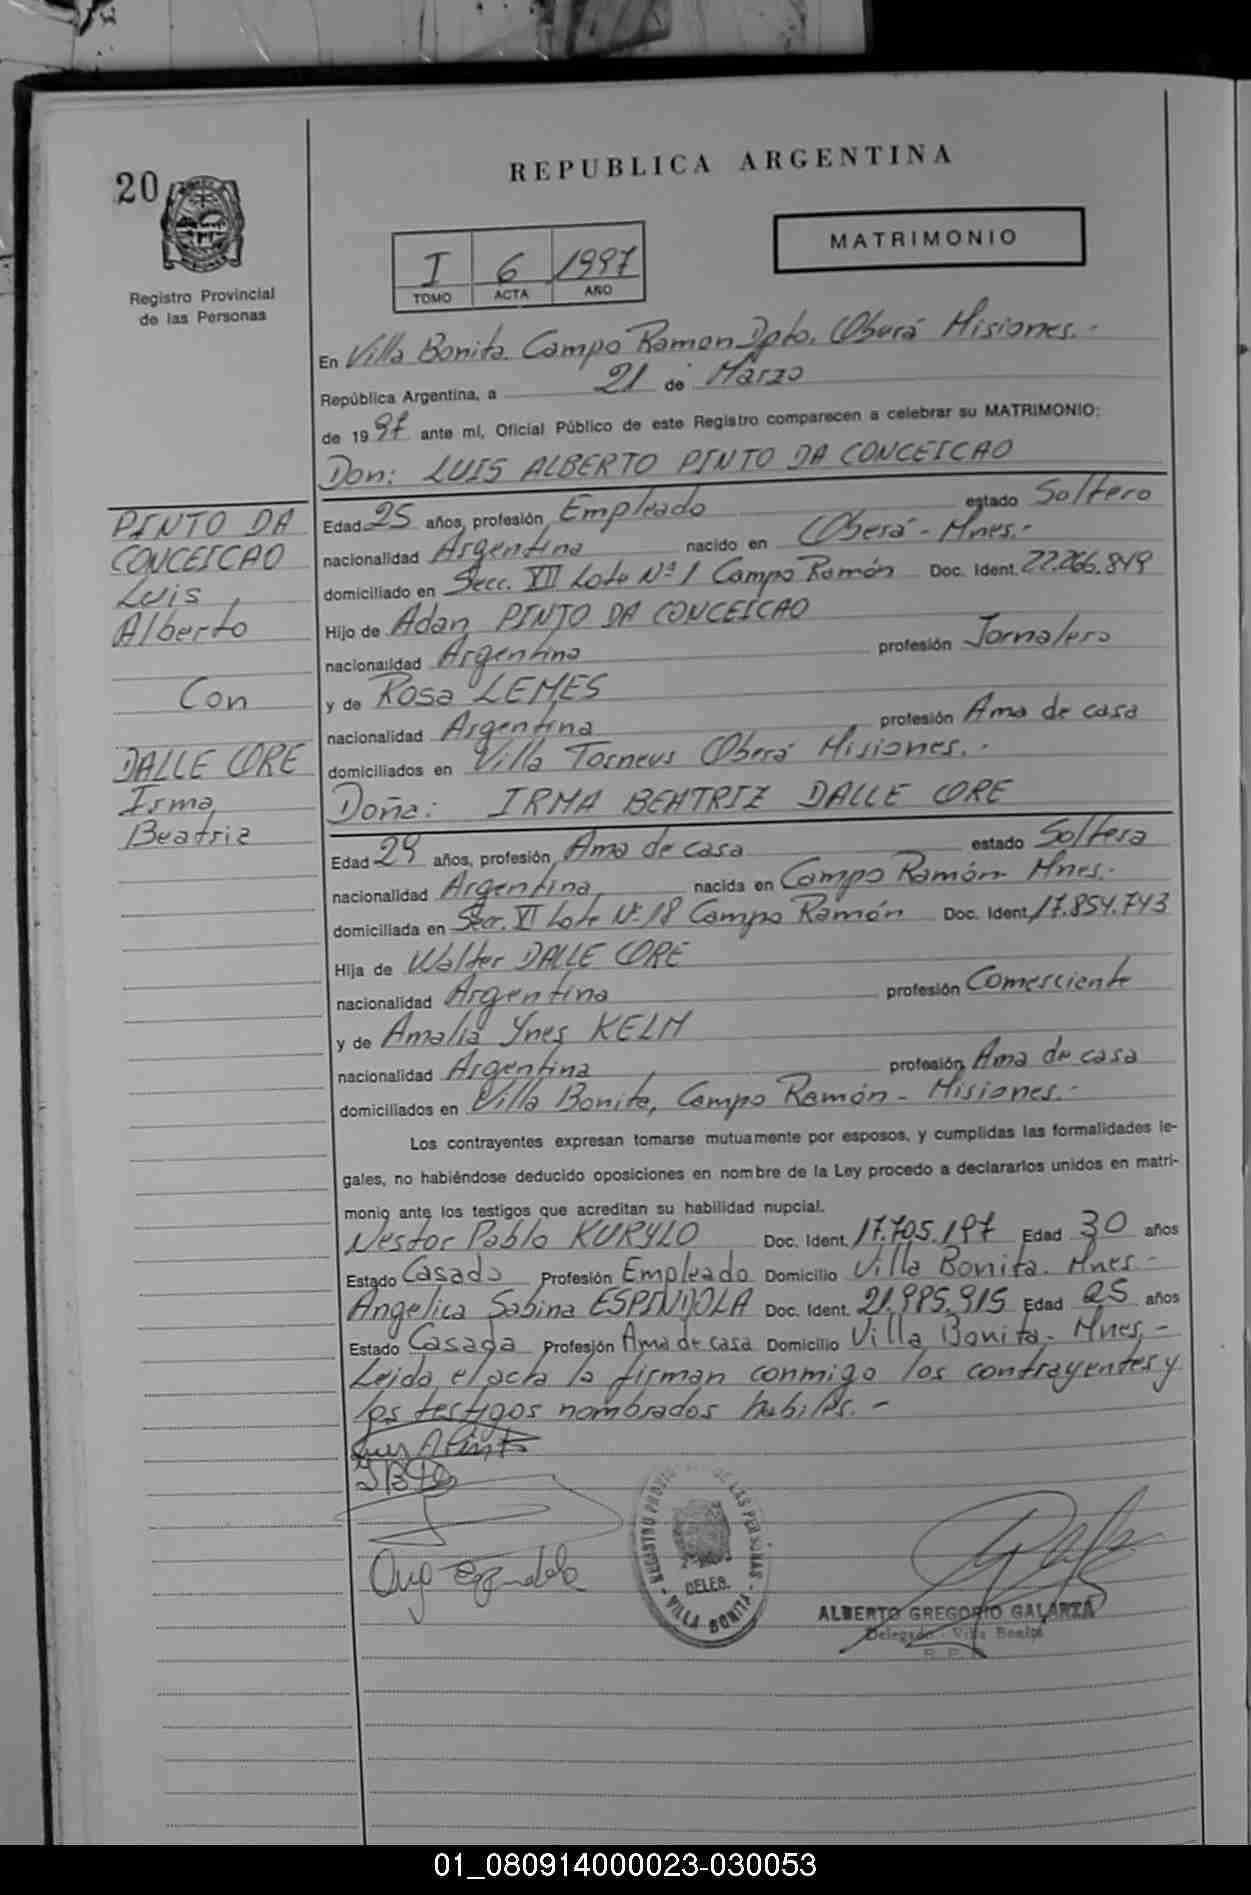 20
Registro Provincial
de las Personas
REPUBLICA ARGENTINA
I 6 1997
TOMO ACTA AÑO
MATRIMONIO
En Villa Bonita. Campo Ramon Dpto. Oberá Misiones.-
República Argentina, a 21 de Marzo
de 1997 ante mí, Oficial Público de este Registro comparecen a celebrar su MATRIMONIO:
Don: LUIS ALBERTO PINTO DA CONCEICAO
Edad 25 años, profesión Empleado estado Soltero
nacionalidad Argentina nacido en Oberá - Mnes.-
domiciliado en Secc. VII Lote Nº 1 Campo Ramón Doc. Ident. 22.266.849
Hijo de Adan PINTO DA CONCEICAO
nacionalidad Argentina profesión Jornalero
y de Rosa LEMES
nacionalidad Argentina profesión Ama de casa
domiciliados en Villa Torneus Oberá Misiones.-
PINTO DA
CONCEICAO
Luis
Alberto
Con
DALLE CORE
Irma
Beatriz
Doña: IRMA BEATRIZ DALLE CORE
Edad 29 años, profesión Ama de casa estado Soltera
nacionalidad Argentina nacida en Campo Ramón- Mnes.-
domiciliada en Secc. VI Lote Nº 18 Campo Ramón Doc. Ident. 17.854.743
Hija de Walter DALLE CORE
nacionalidad Argentina profesión Comerciente
y de Amalia Ynes KELM
nacionalidad Argentina profesión Ama de casa
domiciliados en Villa Bonita, Campo Ramón - Misiones.-
Los contrayentes expresan tomarse mutuamente por esposos, y cumplidas las formalidades le-
gales, no habiéndose deducido oposiciones en nombre de la Ley procedo a declararlos unidos en matri-
monio ante los testigos que acreditan su habilidad nupcial.
Nestor Pablo KURYLO Doc. Ident. 17.705.197 Edad 30 años
Estado Casado Profesión Empleado Domicilio Villa Bonita. Mnes-
Angelica Sabina ESPINDOLA Doc. Ident. 21.985.915 Edad 25 años
Estado Casada Profesión Ama de casa Domicilio Villa Bonita- Mnes.-
Leida el acta la firman conmigo los contrayentes y
los testigos nombrados habiles.-
REGISTRO PROVINCIAL DE LAS PERSONAS
DELEG.
- VILLA BONITA -
ALBERTO GREGORIO GALARZA
Delegado - Villa Bonita
R. P. P.
01_080914000023-030053